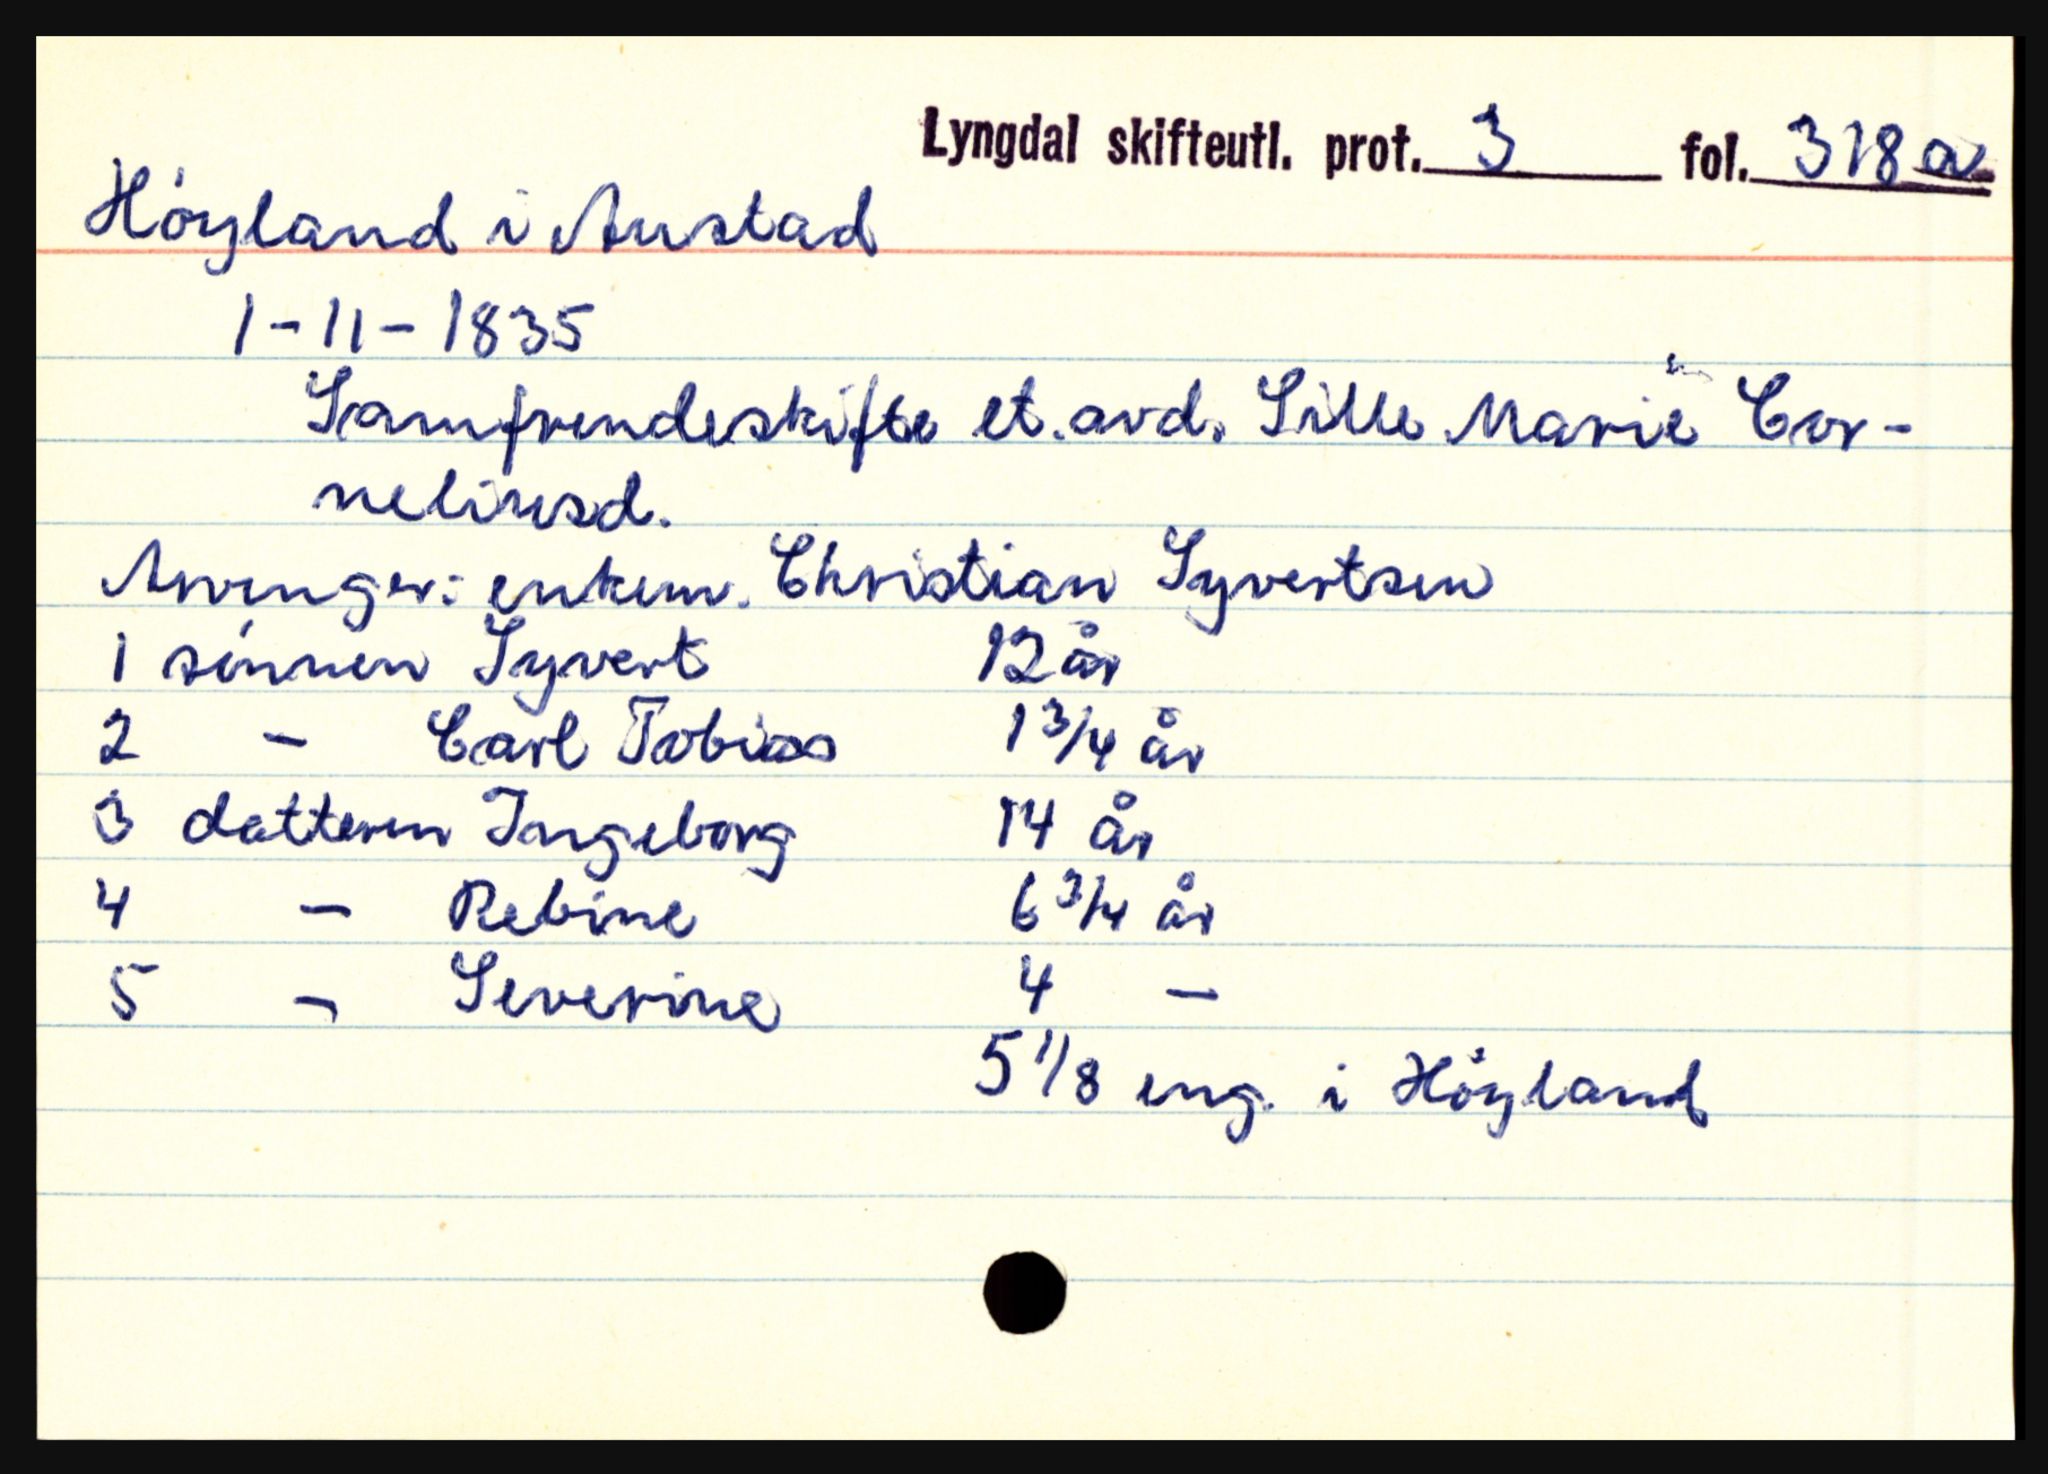 Lyngdal skifteutl. prot. 3 fol. 318a
Höyland i Austad
1-11-1835
Samfrendeskifte et. avd. Sille Marie Cor-
neliusd.
Arvinger: enkem. Christian Syvertsen
1 sönnen Syvert 12 år
2 - Carl Tobias 1 3/4 år
3 datteren Ingeborg 14 år
4 - Rebine 6 3/4 år
5 - Severine 4 -
5 1/8 eng. i Höyland